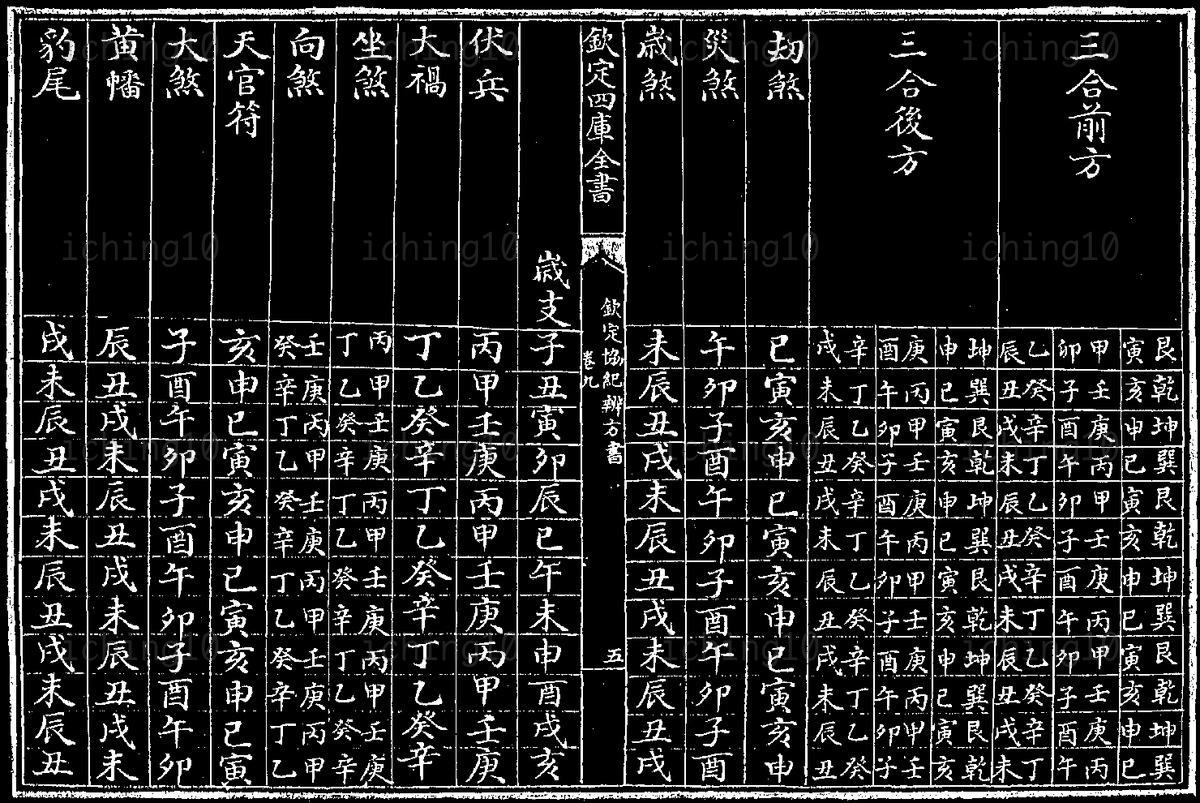 三合前方
艮乾坤巽艮乾坤巽艮乾坤巽
寅亥申巳寅亥申巳寅亥申巳
甲壬庚丙甲壬庚丙甲壬庚丙
卯子酉午卯子酉午卯子酉午
乙癸辛丁乙癸辛丁乙癸辛丁
辰丑戌未辰丑戌未辰丑戌未
三合後方
坤巽艮乾坤巽艮乾坤巽艮乾
申巳寅亥申巳寅亥申巳寅亥
庚丙甲壬庚丙甲壬庚丙甲壬
酉午卯子酉午卯子酉午卯子
辛丁乙癸辛丁乙癸辛丁乙癸
戌未辰丑戌未辰丑戌未辰丑
劫煞 巳寅亥申巳寅亥申巳寅亥申
災煞 午卯子酉午卯子酉午卯子酉
歲煞 未辰丑戌未辰丑戌未辰丑戌
欽定四庫全書
欽定協紀辨方書
卷九
五
歲支子丑寅卯辰巳午未申酉戌亥
伏兵 丙甲壬庚丙甲壬庚丙甲壬庚
大禍 丁乙癸辛丁乙癸辛丁乙癸辛
坐煞
丙甲壬庚丙甲壬庚丙甲壬庚
丁乙癸辛丁乙癸辛丁乙癸辛
向煞
壬庚丙甲壬庚丙甲壬庚丙甲
癸辛丁乙癸辛丁乙癸辛丁乙
天官符 亥申巳寅亥申巳寅亥申巳寅
大煞 子酉午卯子酉午卯子酉午卯
黃幡 辰丑戌未辰丑戌未辰丑戌未
豹尾 戌未辰丑戌未辰丑戌未辰丑
iching10 iching10 iching10 iching10
iching10 iching10 iching10 iching10
iching10 iching10 iching10 iching10
iching10 iching10 iching10 iching10